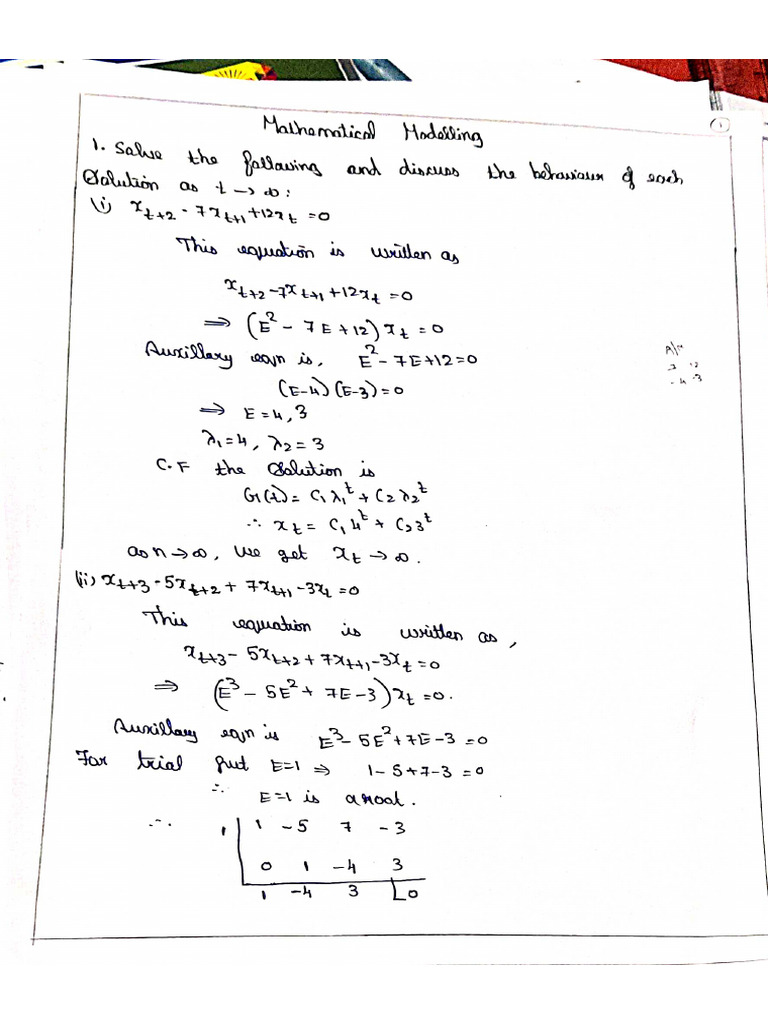 Mathematical Modelling
1
1. Solve the following and discuss the behaviour of each
Solution as t → ∞:
(i) x_{t+2} - 7x_{t+1} + 12x_t = 0
This equation is written as
x_{t+2} - 7x_{t+1} + 12x_t = 0
⇒ (E² - 7E + 12) x_t = 0
Auxillary eqn is, E² - 7E + 12 = 0
(E-4)(E-3) = 0
⇒ E = 4, 3
λ₁ = 4, λ₂ = 3
C.F the Solution is
G(t) = C₁λ₁^t + C₂λ₂^t
∴ x_t = C₁4^t + C₂3^t
as n → ∞, we get x_t → ∞.
(ii) x_{t+3} - 5x_{t+2} + 7x_{t+1} - 3x_t = 0
This equation is written as,
x_{t+3} - 5x_{t+2} + 7x_{t+1} - 3x_t = 0
⇒ (E³ - 5E² + 7E - 3) x_t = 0.
Auxillary eqn is E³ - 5E² + 7E - 3 = 0
For trial put E=1 ⇒ 1 - 5 + 7 - 3 = 0
∴ E=1 is a root.
∴ 1 | 1 -5 7 -3
0 1 -4 3
1 -4 3 | 0